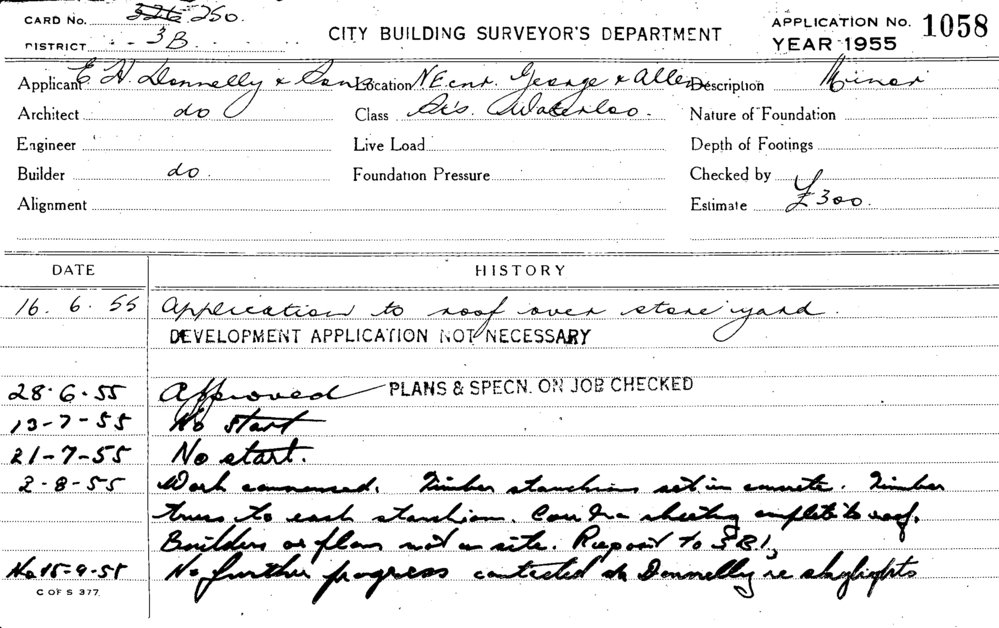 CARD No. 326 250.
DISTRICT 3B
CITY BUILDING SURVEYOR'S DEPARTMENT
APPLICATION No. 1058
YEAR 1955
Applicant E. H. Donnelly & Sons Location N Ecnr. George & Allen Description Minor
Architect do Class Waterloo. Nature of Foundation
Engineer Live Load Depth of Footings
Builder do. Foundation Pressure Checked by
Alignment Estimate £300.
DATE HISTORY
16. 6. 55 Application to roof over store yard.
DEVELOPMENT APPLICATION NOT NECESSARY
28.6.55 Approved PLANS & SPECN. ON JOB CHECKED
13-7-55 No start
21-7-55 No start.
2-8-55 Work commenced. Timber stanchions set in concrete. Timber
truss to each stanchion. sheeting complete to roof.
Builders or plans not on site. Report to
15-9-55 No further progress contacted Donnelly re skylights
C OF S 377